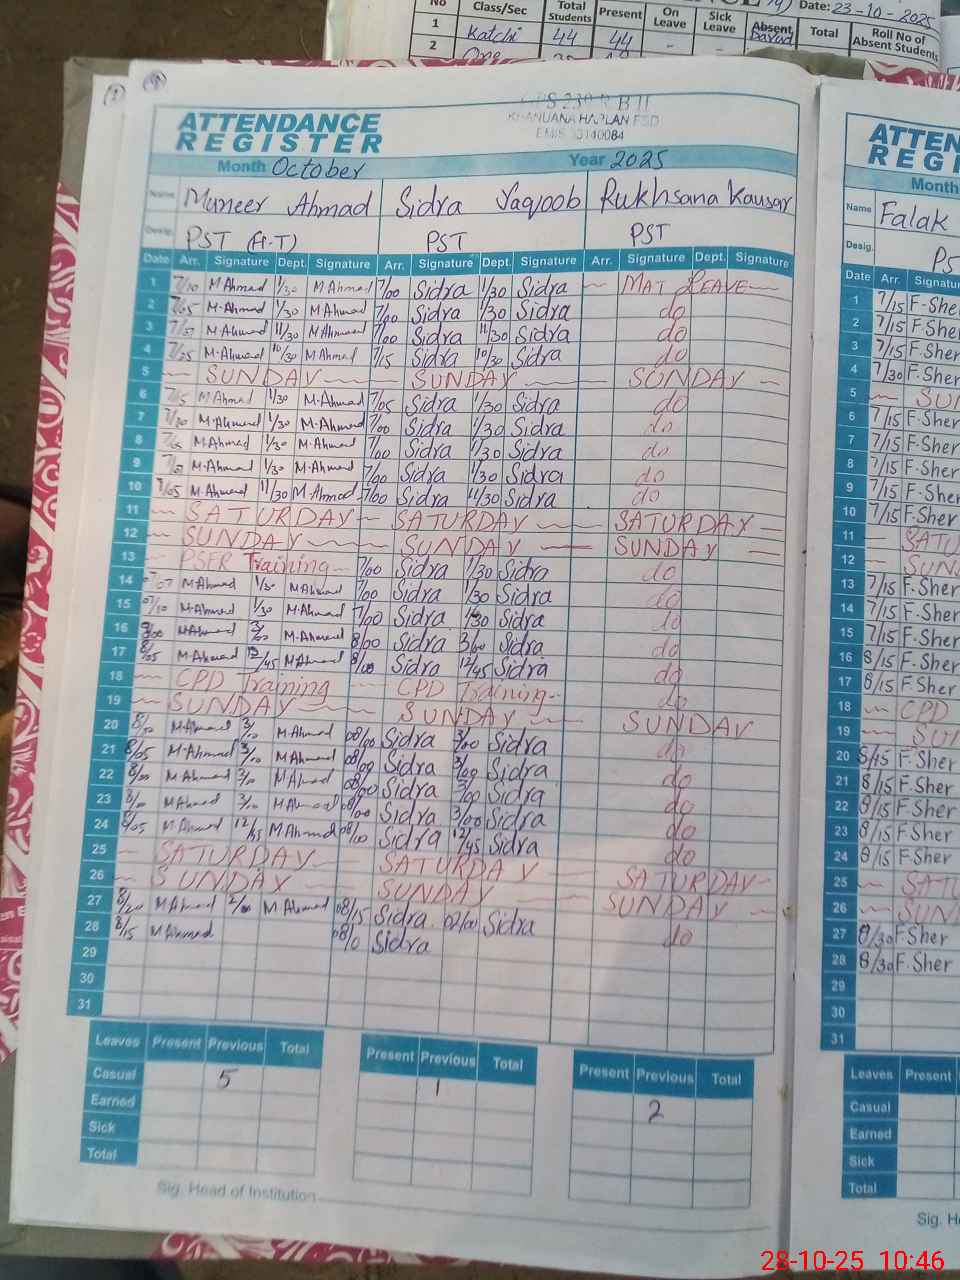 Class/Sec Total Students Present On Leave Sick Leave Absent Total Roll No of Absent Students
Date: 23-10-2025
1 Katchi 44 44 - -
2 One
ATTENDANCE REGISTER
KHANUANA HARLAN FSD
Month October Year 2025
Name Muneer Ahmad Sidra Yaqoob Rukhsana Kausar
Desig. PST (H-T) PST PST
Date Arr. Signature Dept. Signature Arr. Signature Dept. Signature Arr. Signature Dept. Signature
1 7/10 M Ahmad 1/30 M Ahmad 7/00 Sidra 1/30 Sidra MAT LEAVE
2 7/05 M. Ahmad 1/30 M Ahmad 7/00 Sidra 1/30 Sidra do
3 M. Ahmad 11/30 M Ahmad 7/00 Sidra 11/30 Sidra do
4 7/25 M. Ahmad 10/30 M Ahmad 7/15 Sidra 10/30 Sidra do
5 SUNDAY SUNDAY SUNDAY
6 7/15 M Ahmad 1/30 M. Ahmad 7/05 Sidra 1/30 Sidra do
7 M. Ahmad 1/30 M. Ahmad 7/00 Sidra 1/30 Sidra do
8 M Ahmad 1/30 M. Ahmad 7/00 Sidra 1/30 Sidra do
9 M. Ahmad 1/30 M. Ahmad 7/00 Sidra 1/30 Sidra do
10 7/05 M. Ahmad 11/30 M Ahmad 7/00 Sidra 11/30 Sidra do
11 SATURDAY SATURDAY SATURDAY
12 SUNDAY SUNDAY SUNDAY
13 Training 7/00 Sidra 1/30 Sidra do
14 07/07 M Ahmad 1/30 M Ahmad 7/00 Sidra 1/30 Sidra do
15 07/10 M Ahmad 1/30 M. Ahmad 7/00 Sidra 1/30 Sidra do
16 M Ahmad 3/00 M. Ahmad 8/00 Sidra 3/00 Sidra do
17 8/05 M. Ahmad 12/45 M Ahmad 8/00 Sidra 12/45 Sidra do
18 CPD Training CPD Training do
19 SUNDAY SUNDAY SUNDAY
20 M. Ahmad M Ahmad 08/00 Sidra 3/00 Sidra do
21 8/05 M. Ahmad M Ahmad 08/00 Sidra 3/00 Sidra do
22 8/00 M Ahmad M Ahmad 08/00 Sidra 3/00 Sidra do
23 M Ahmad M Ahmad 08/00 Sidra 3/00 Sidra do
24 8/05 M. Ahmad 12/45 M Ahmad Sidra 12/45 Sidra do
25 SATURDAY SATURDAY SATURDAY
26 SUNDAY SUNDAY SUNDAY
27 8/20 M Ahmad 2/00 M Ahmad 08/15 Sidra 02/00 Sidra
28 8/15 M Ahmad Sidra do
29
30
31
Leaves Present Previous Total Present Previous Total Present Previous Total
Casual 5 1
Earned 2
Sick
Total
Sig. Head of Institution
Month
Name Falak
Desig.
Date Arr.
1 7/15 F-Sher
2 7/15 F-Sher
3 7/15 F-Sher
4 7/30 F-Sher
5
6 7/15 F-Sher
7 7/15 F-Sher
8 7/15 F-Sher
9 7/15 F-Sher
10 7/15 F-Sher
11
12
13 7/15 F-Sher
14 7/15 F-Sher
15 7/15 F-Sher
16 8/15 F-Sher
17 8/15 F.Sher
18 CPD
19
20 8/15 F-Sher
21 8/15 F-Sher
22 8/15 F-Sher
23 8/15 F-Sher
24 8/15 F.Sher
25
26
27 8/30 F-Sher
28 8/30 F.Sher
29
30
31
Leaves Present
Casual
Earned
Sick
Total
28-10-25 10:46